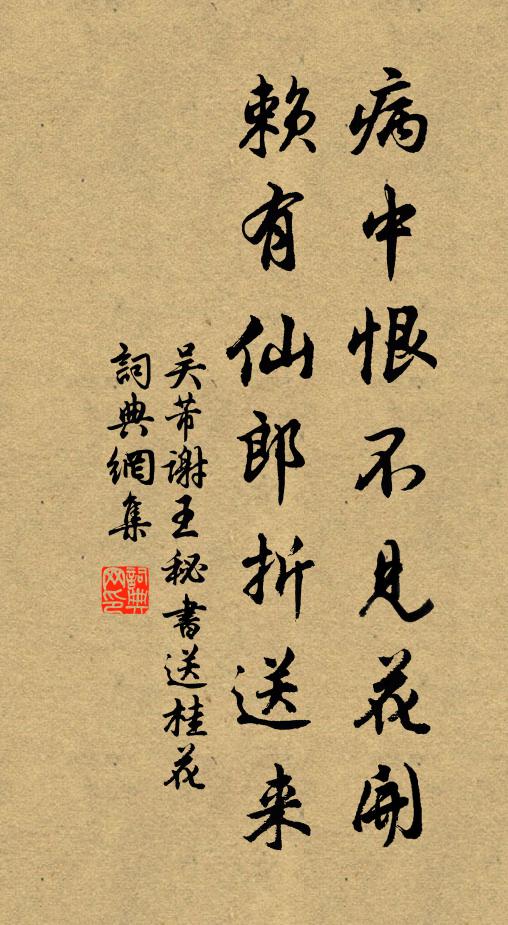 病中恨不見花開
賴有仙郎折送来
吴芾謝王秘書送桂花
詞典網集
詞典網印